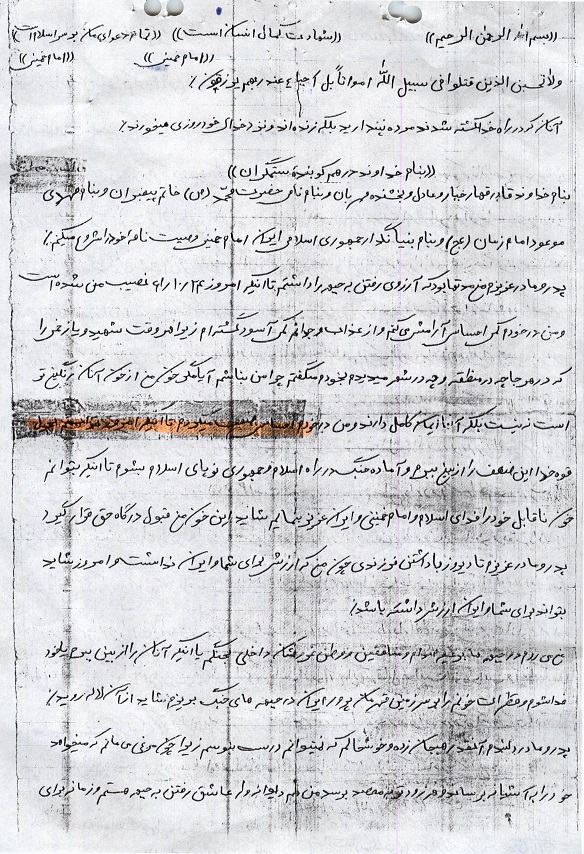 ((بسم الله الرحمن الرحیم)) ((شهادت کمال انسان است)) ((تمام دعوای من بر سر اسلام است))
((امام خمینی)) ((امام خمینی))
ولا تحسبن الذین قتلوا فی سبیل الله امواتاً بل احیاء عند ربهم یرزقون٪
آنان که در راه خدا کشته شدند مرده نپندارید بلکه زنده‌اند و نزد خدای خود روزی میخورند٪
((بنام خداوند درهم کوبنده ستمگران))
بنام خداوند قادر قهار جبار و عادل و بخشنده مهربان و بنام نامی حضرت محمد (ص) خاتم پیغمبران و بنام مهدی
موعود امام زمان (عج) و بنام بنیانگذار جمهوری اسلامی ایران امام خمینی وصیت نامه خود را شروع میکنم٪
پدر و مادر عزیزم من مدتها بود که آرزوی رفتن به جبهه را داشتم تا اینکه امروز نصیب من شده است
و من در خودم کمی احساس آرامش می‌کنم و از عذاب وجدانم کمی آسوده گشته‌ام زیرا هر وقت شهید و یا زخمی را
که در هر جا چه در منطقه و چه در شهر میدیدم بخودم میگفتم چرا من نباشم آیا مگر خون من از خون آنان رنگین تر
است نه نیست بلکه آنان ایمان کامل دارند و من در خودم احساس
قوه خدا این ضعف را از بین ببرم و آماده جنگ در راه اسلام و جمهوری نوپای اسلام بشوم تا اینکه بتوانم
خون ناقابل خود را فدای اسلام و امام خمینی و ایران عزیز بنمایم شاید این خون من قبول درگاه حق قرار گیرد
پدر و مادر عزیزم تا دیروز با داشتن فرزندی چون من که ارزش برای شما و ایران نداشت و امروز شاید
بتواند برای شما و ایران ارزش داشته باشد٪
من می روم در جبهه تا با و منافقین و وطن فروشان داخلی بجنگم یا اینکه آنان را از بین ببرم یا خود
فدا شوم و قطرات خونم را بر سرزمین قهرمان پرور ایران در جبهه های جنگ بریزم شاید از آن لاله روید٪
پدر و مادر دلبندم آنقدر هیجان زده و خوشحالم که نمیتوانم درست بنویسم زیرا چون مرغی می مانم که میخواهد
خود را به آشیانه برساند و هر زودتر به مقصد برسد من هم دیوانه وار عاشق رفتن به جبهه هستم و زمانه برای